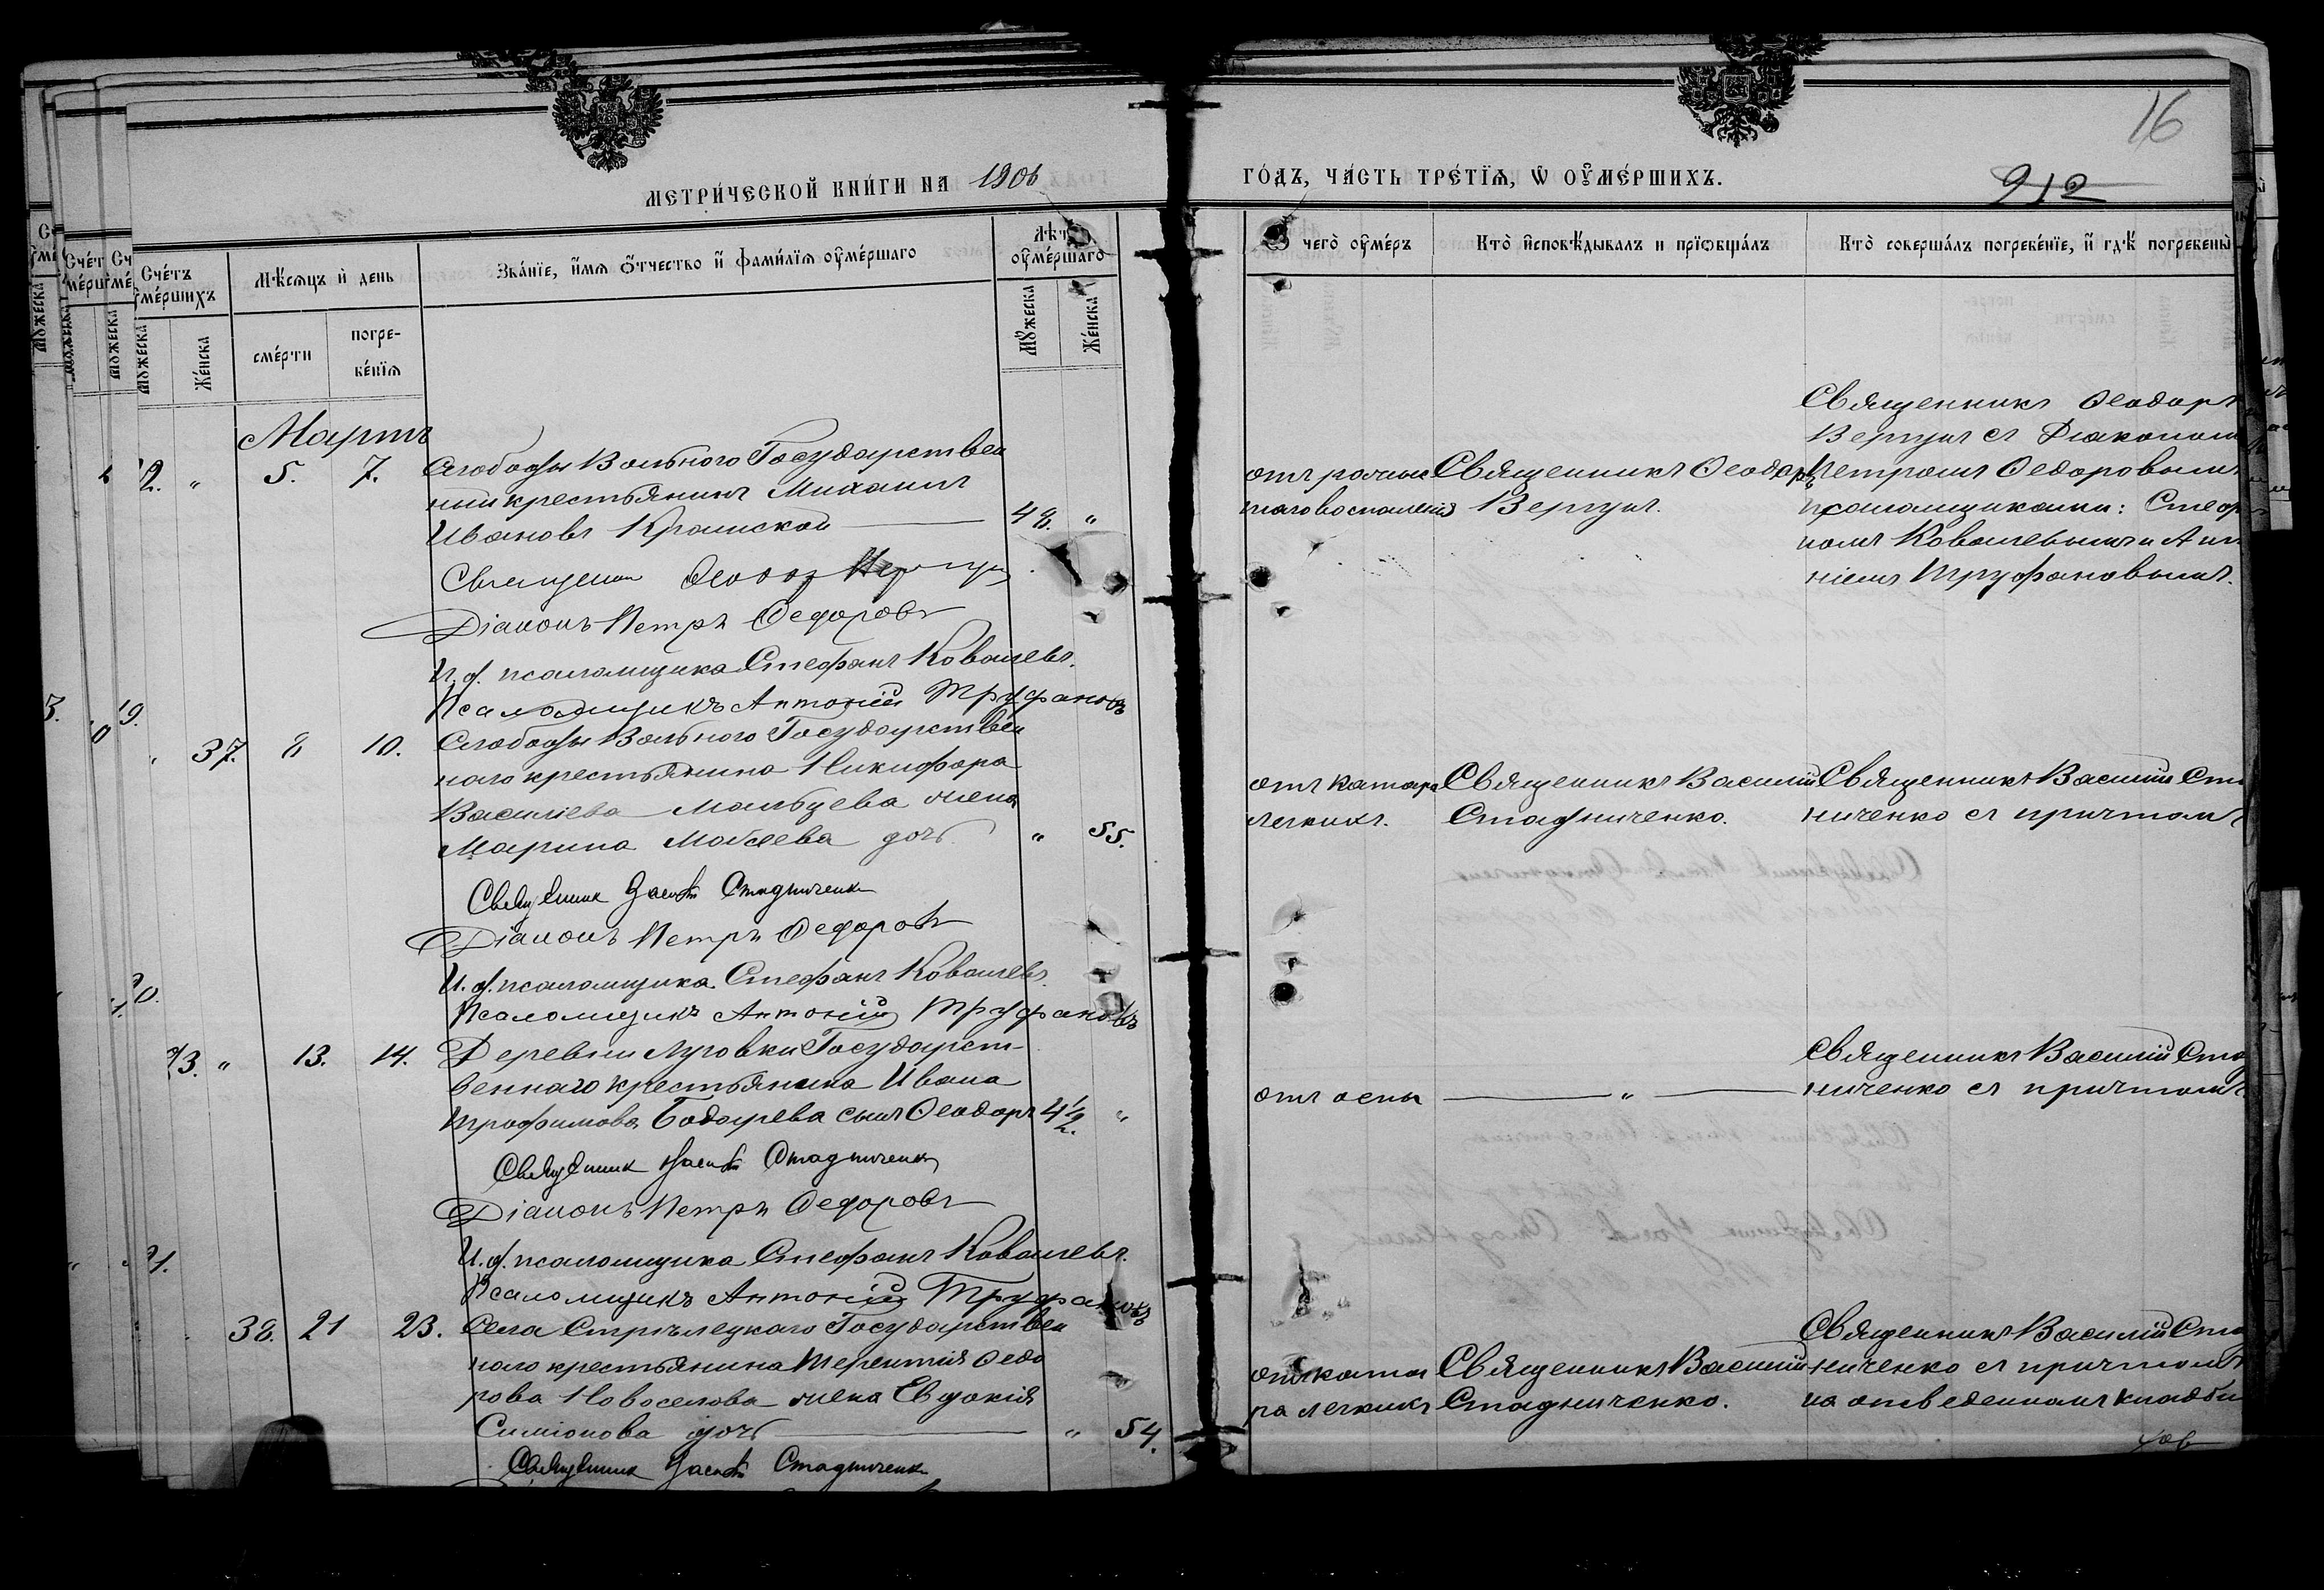 МЕТРИЧЕСКОЙ КНИГИ НА 1906
ГОДЪ, ЧАСТЬ ТРЕТІѦ, Ѡ ОУМЕРШИХЪ.
16
912
Счетъ
умершихъ
Мѣсѧцъ и день
Званіе, имѧ отчество и фамиліѧ оумершаго
Лѣт
оумершаго
Мужеска
Женска
смерти
погре-
бенїѧ
Мужеска
Женска
чего оумеръ
Кто исповѣдывалъ и прїѡбщалъ
Кто совершалъ погребенїе, и гдѣ погребены
Мартъ
2. " 5. 7. Слободы Вольнаго Государствен
ный крестьянинъ Михаилъ
Ивановъ Крамской 48. "
Священник Ѳеодор Вергун
Діаконъ Петръ Ѳедоровъ
И. д. псаломщика Стефанъ Ковалевъ.
Псаломщикъ Антоній Труфановъ
Священникъ Ѳеодоръ
Вергунъ.
Священникъ Ѳеодоръ
Вергунъ съ Діакономъ
Петромъ Ѳедоровымъ
псаломщиками: Стеф
номъ Ковалевымъ и Ант
ніемъ Труфановымъ.
" 37. 8 10. Слободы Вольнаго Государствен
наго крестьянина Никифора
Василіева Мальцева жена
Марина Моѵсеева дочь " 55.
Священник Василій Стадниченко
Діаконъ Петръ Ѳедоровъ
И. д. псаломщика Стефанъ Ковалевъ.
Псаломщикъ Антоній Труфановъ
отъ катара
легкихъ.
Священникъ Василій
Стадниченко.
Священникъ Василій Ста
ниченко съ причтомъ
13. " 13. 14. Деревни Луговки Государст-
веннаго крестьянина Ивана
Трофимова Бодарева сынъ Ѳеодоръ 4½. "
Священник Василій Стадниченко
Діаконъ Петръ Ѳедоровъ
И. д. псаломщика Стефанъ Ковалевъ.
Псаломщикъ Антоній Труфановъ
отъ оспы "
Священникъ Василій Стад
ниченко съ причтомъ
38. 21 23. Села Стрѣлецкаго Государствен
наго крестьянина Терентія Ѳедо
рова Новоселова жена Евдокія
Симіонова дочь " 54.
Священник Василій Стадниченко
отъ ката
ра легкихъ
Священникъ Василій
Стадниченко.
Священникъ Василій Стад
ниченко съ причтомъ
на отведенномъ кладби